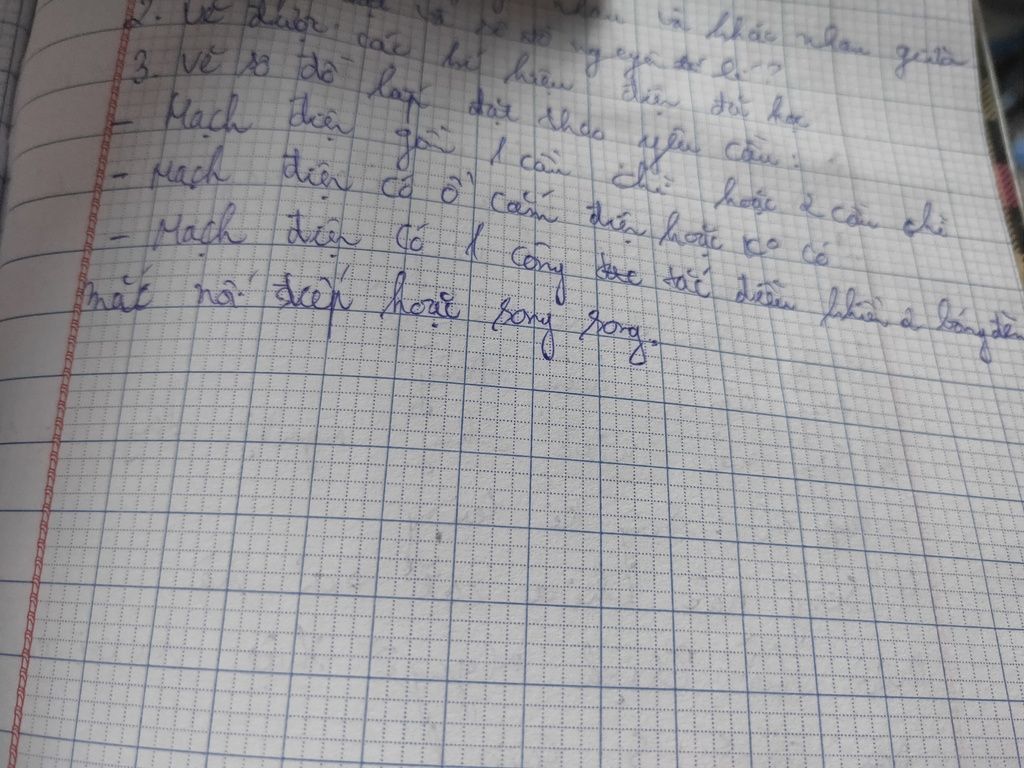 và khác nhau giữa
2. Vẽ được các kí hiệu điện đã học
3. Vẽ sơ đồ lắp đặt theo yêu cầu:
- Mạch điện gồm 1 cầu chì hoặc 2 cầu chì
- Mạch điện có ổ cắm điện hoặc ko có
- Mạch điện có 1 công tắc điều khiển 2 bóng đèn
mắc nối tiếp hoặc song song.